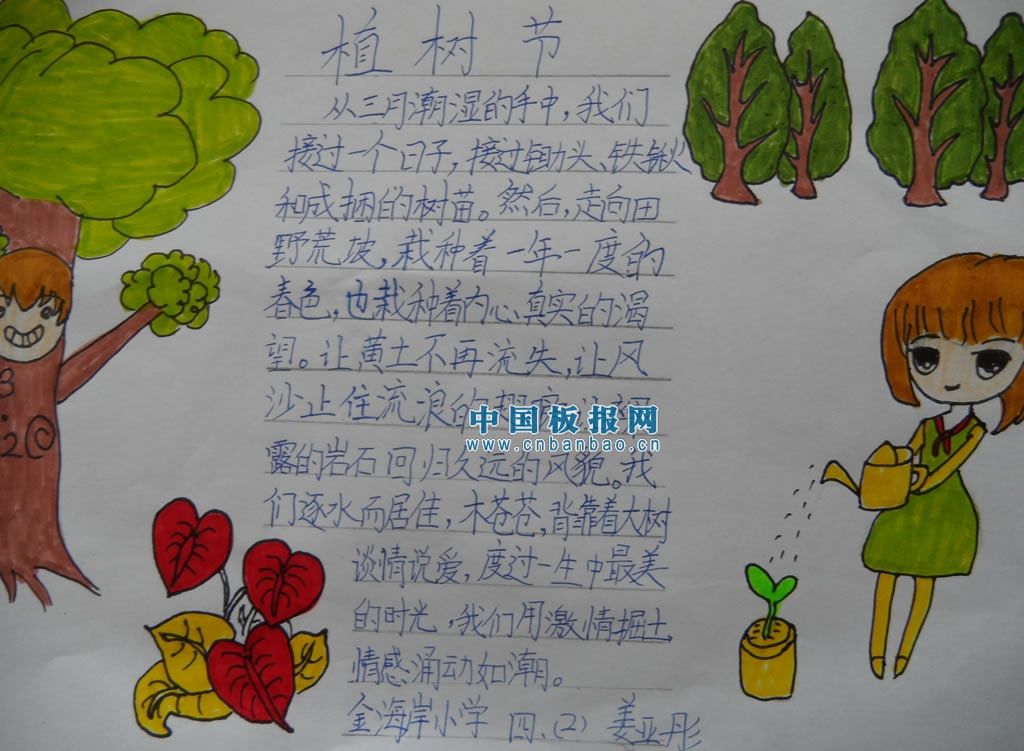 植树节
从三月潮湿的手中，我们
接过一个日子，接过锄头、铁锹
和成捆的树苗。然后，走向田
野荒坡，栽种着一年一度的
春色，也栽种着内心真实的渴
望。让黄土不再流失，让风
沙止住流浪的
中国板报网
www.cnbanbao.cn
露的岩石回归久远的风貌。我
们逐水而居住，木苍苍，背靠着大树
谈情说爱，度过一生中最美
的时光，我们用激情掘土，
情感涌动如潮。
金海岸小学 四、(2) 姜亚彤
3
.
2@